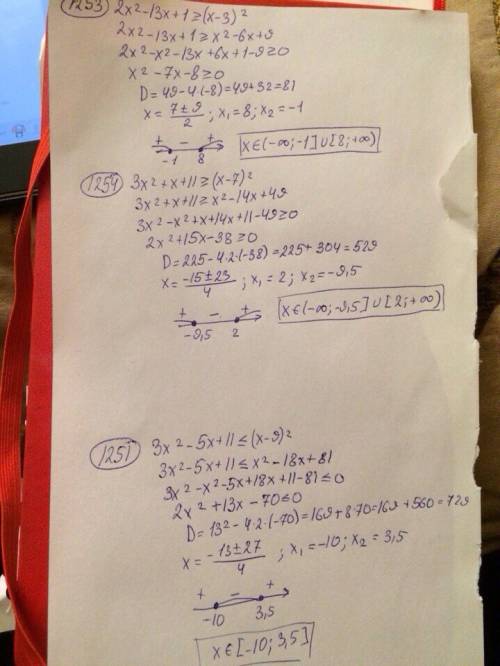 1253 2x²-13x+1≥(x-3)²
2x²-13x+1≥x²-6x+9
2x²-x²-13x+6x+1-9≥0
x²-7x-8≥0
D=49-4·(-8)=49+32=81
x=(7±9)/2; x₁=8; x₂=-1
+ - +
-1 8
x∈(-∞;-1]∪[8;+∞)
1254 3x²+x+11≥(x-7)²
3x²+x+11≥x²-14x+49
3x²-x²+x+14x+11-49≥0
2x²+15x-38≥0
D=225-4·2·(-38)=225+304=529
x=(-15±23)/4; x₁=2; x₂=-9,5
+ - +
-9,5 2
x∈(-∞;-9,5]∪[2;+∞)
1251 3x²-5x+11≤(x-9)²
3x²-5x+11≤x²-18x+81
3x²-x²-5x+18x+11-81≤0
2x²+13x-70≤0
D=13²-4·2·(-70)=169+8·70=169+560=729
x=(-13±27)/4; x₁=-10; x₂=3,5
+ - +
-10 3,5
x∈[-10;3,5]